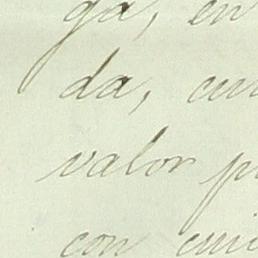 ga, en
da, cu
valor p
con cui